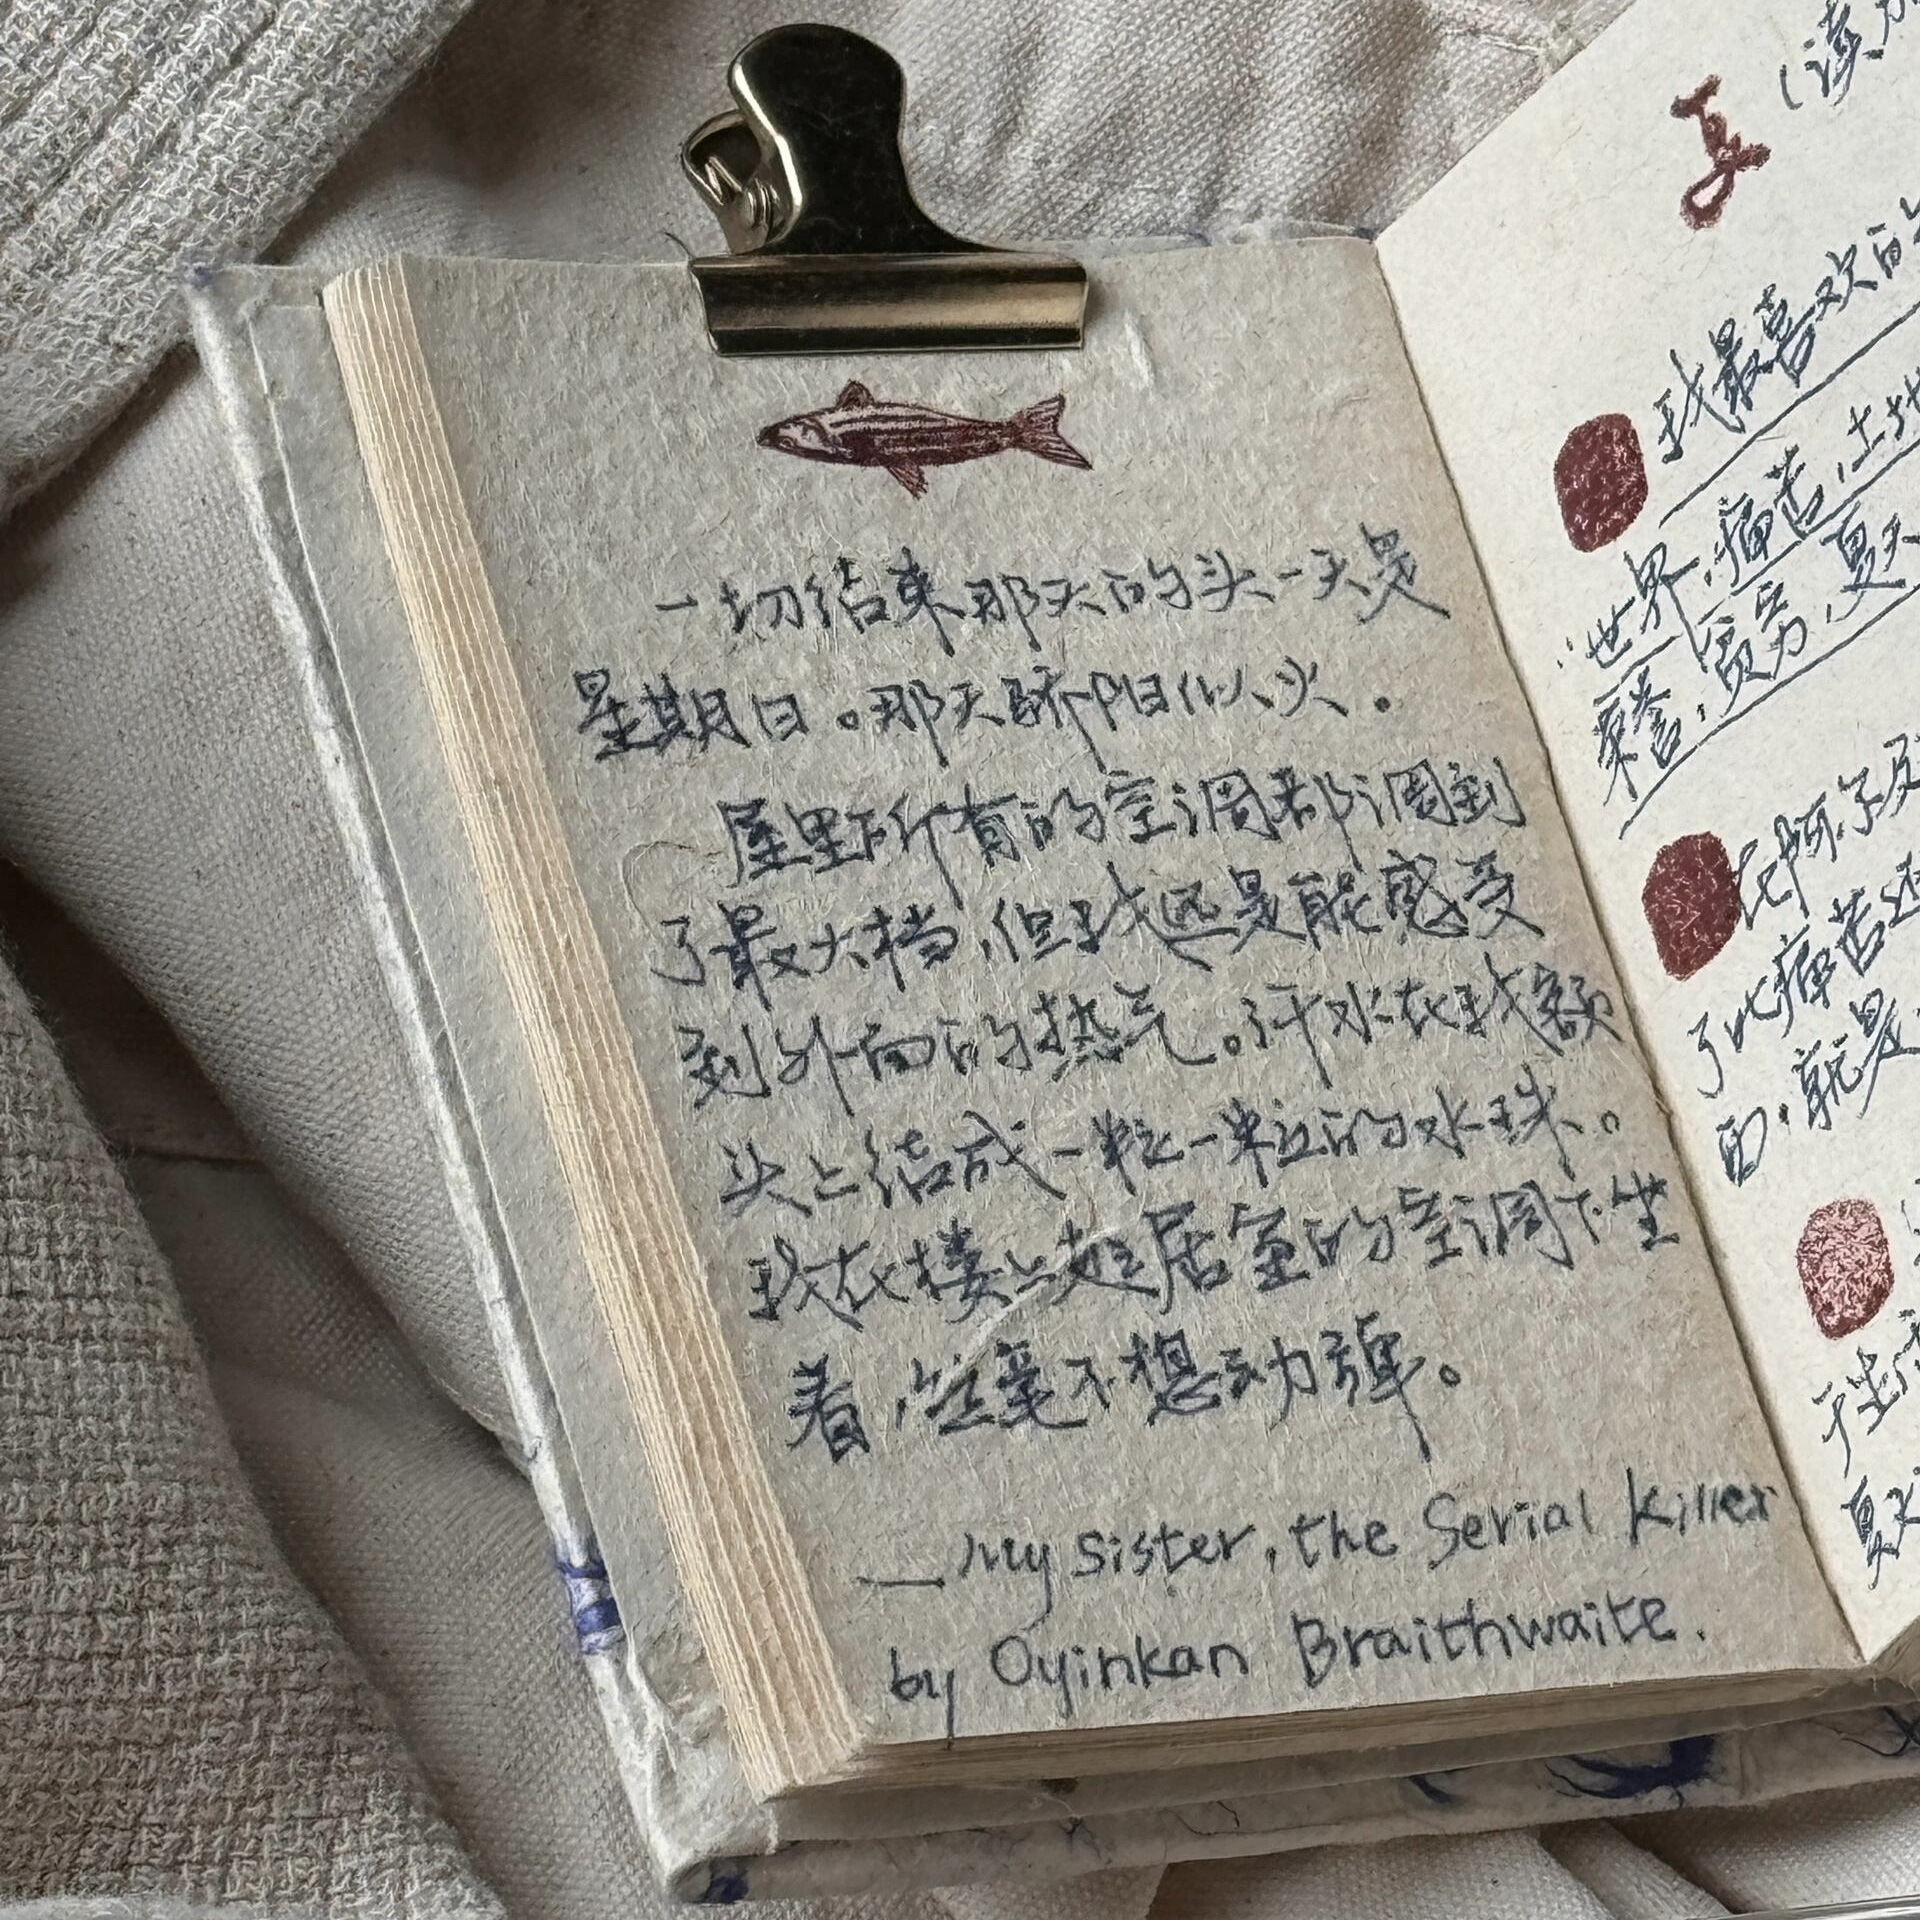 一切结束那天的头一天是
星期日。那天骄阳似火。
屋里所有的空调都调到
了最大档，但我还是能感受
到外面的热气。汗水在我额
头上结成一粒一粒的水珠。
我在楼上起居室的空调下坐
着，丝毫不想动弹。
—My sister, the Serial Killer
by Oyinkan Braithwaite.
夏（读
我最喜欢的
"世界，痛苦，土地
荣誉，贫穷，夏天
在阿尔及
了此痛苦
面，就是
于
夏天